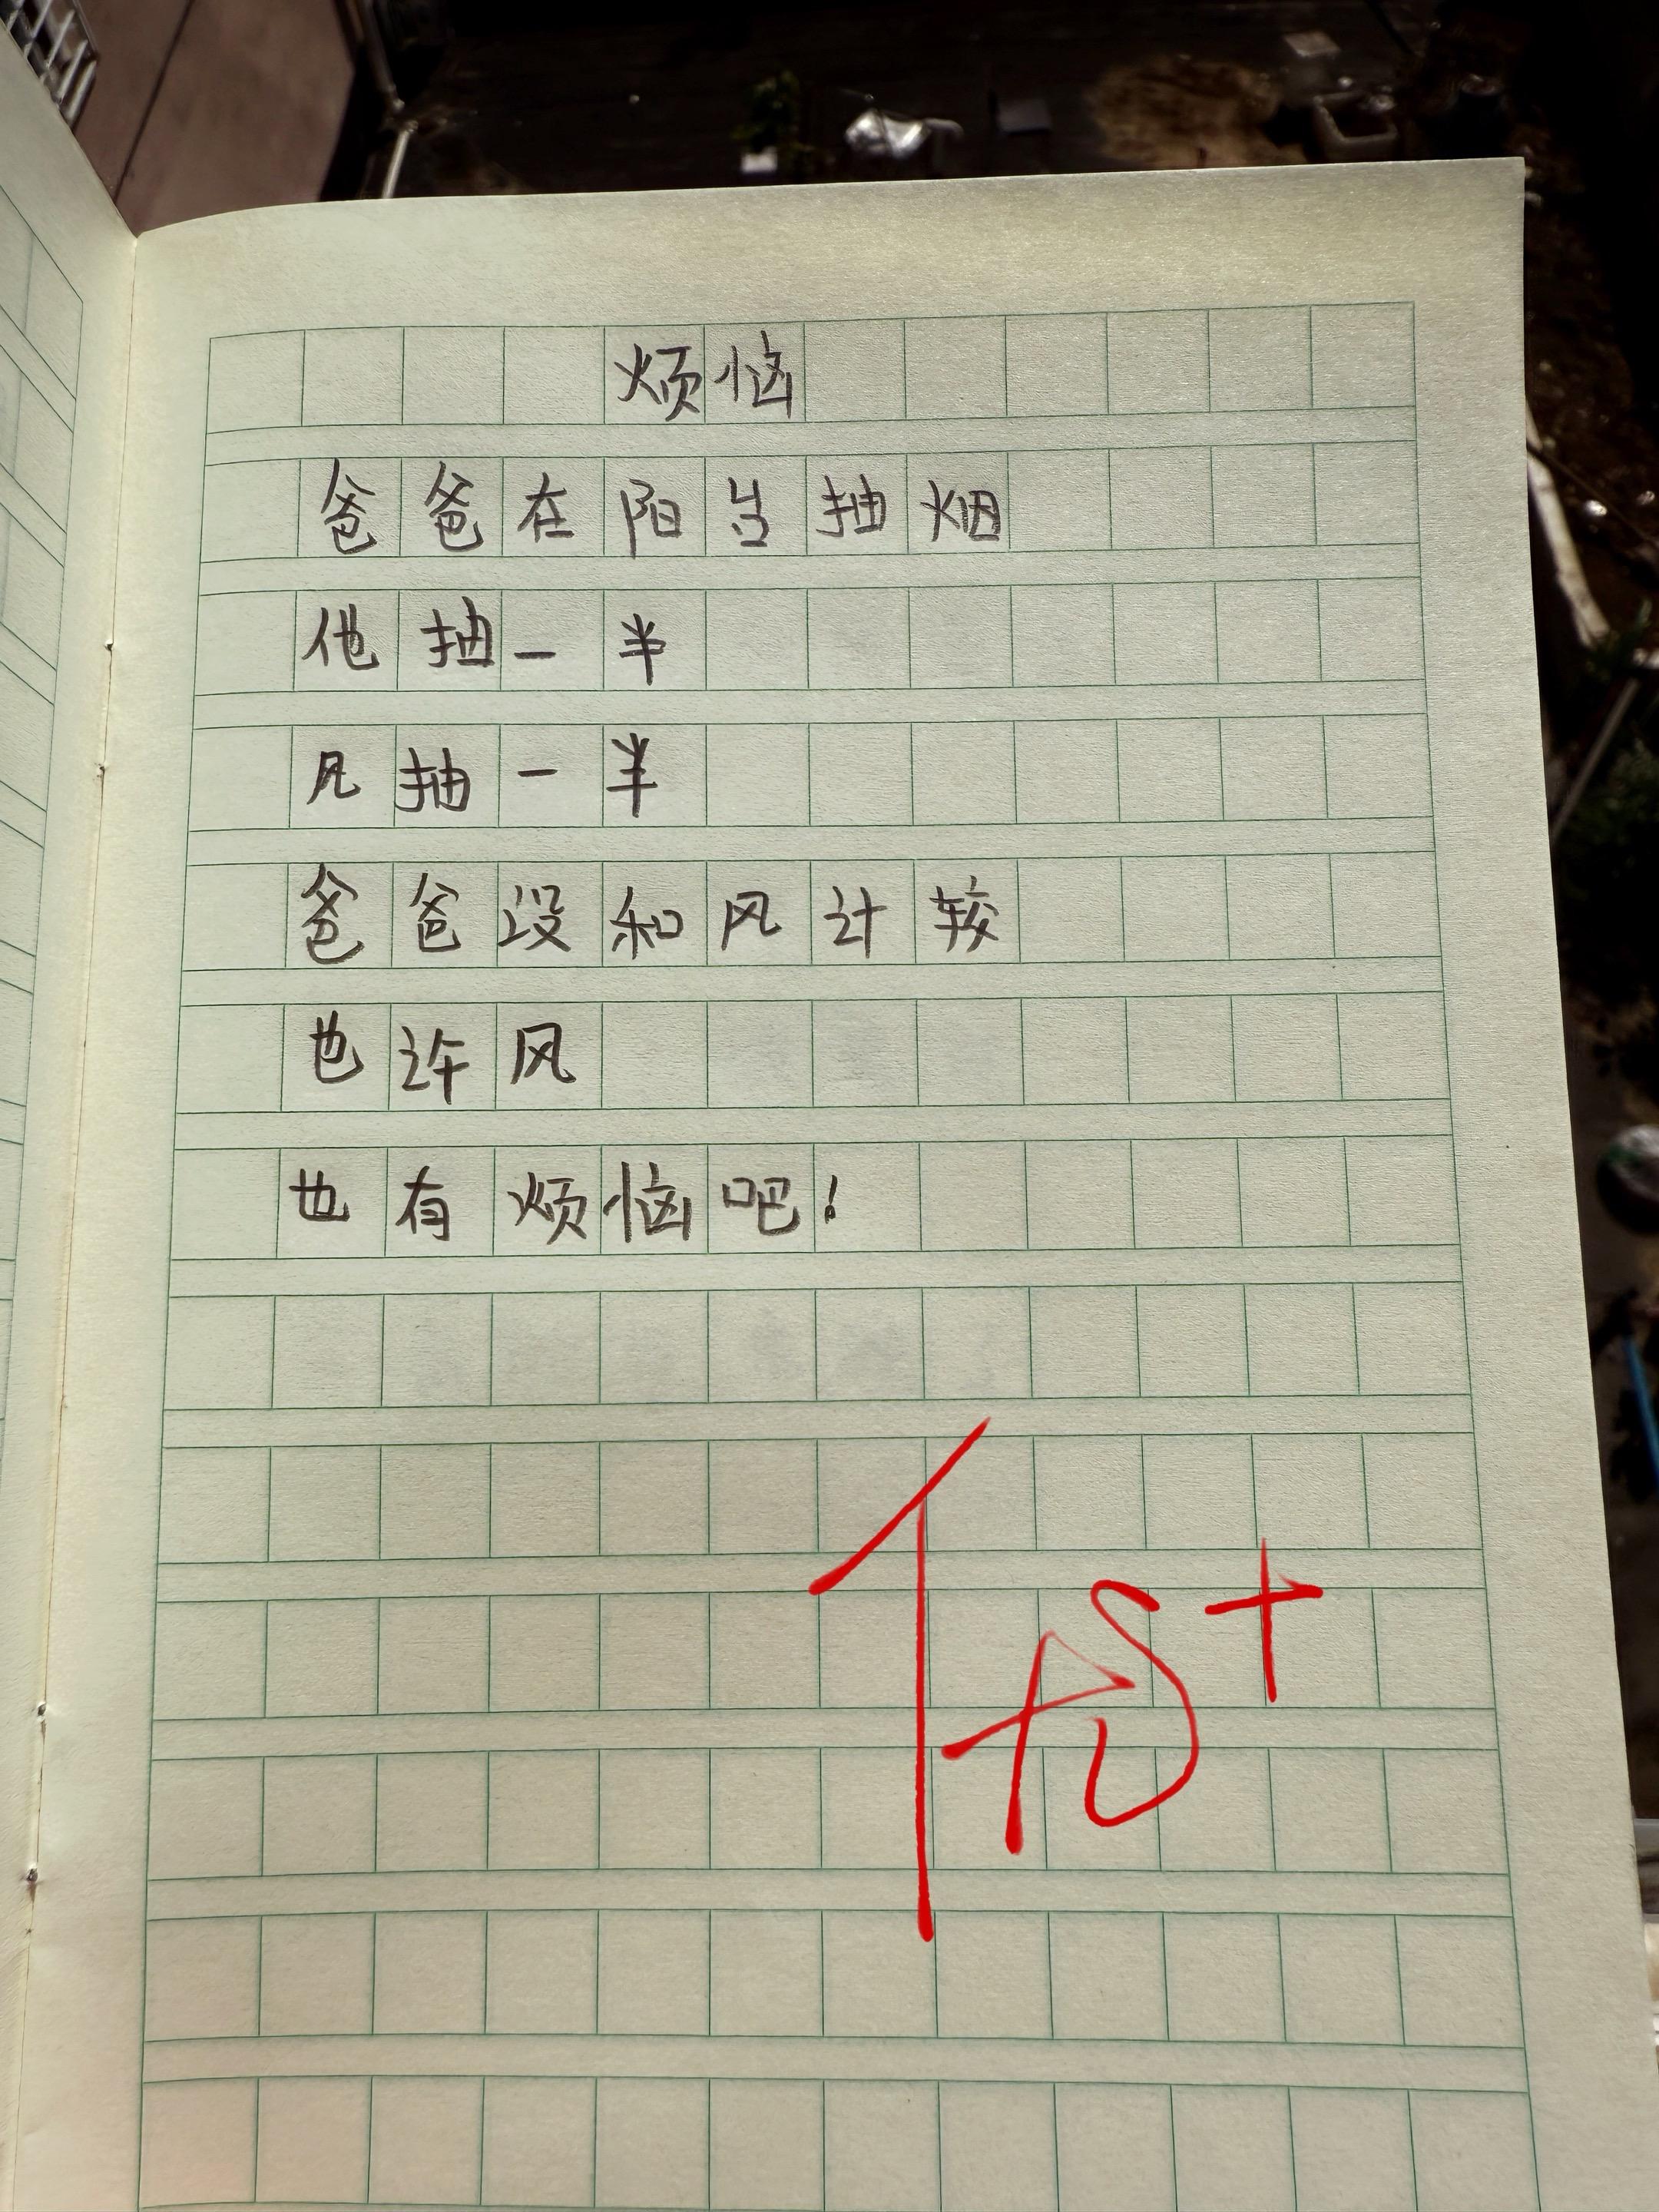 烦恼
爸爸在阳台抽烟
他抽一半
风抽一半
爸爸没和风计较
也许风
也有烦恼吧！
优+